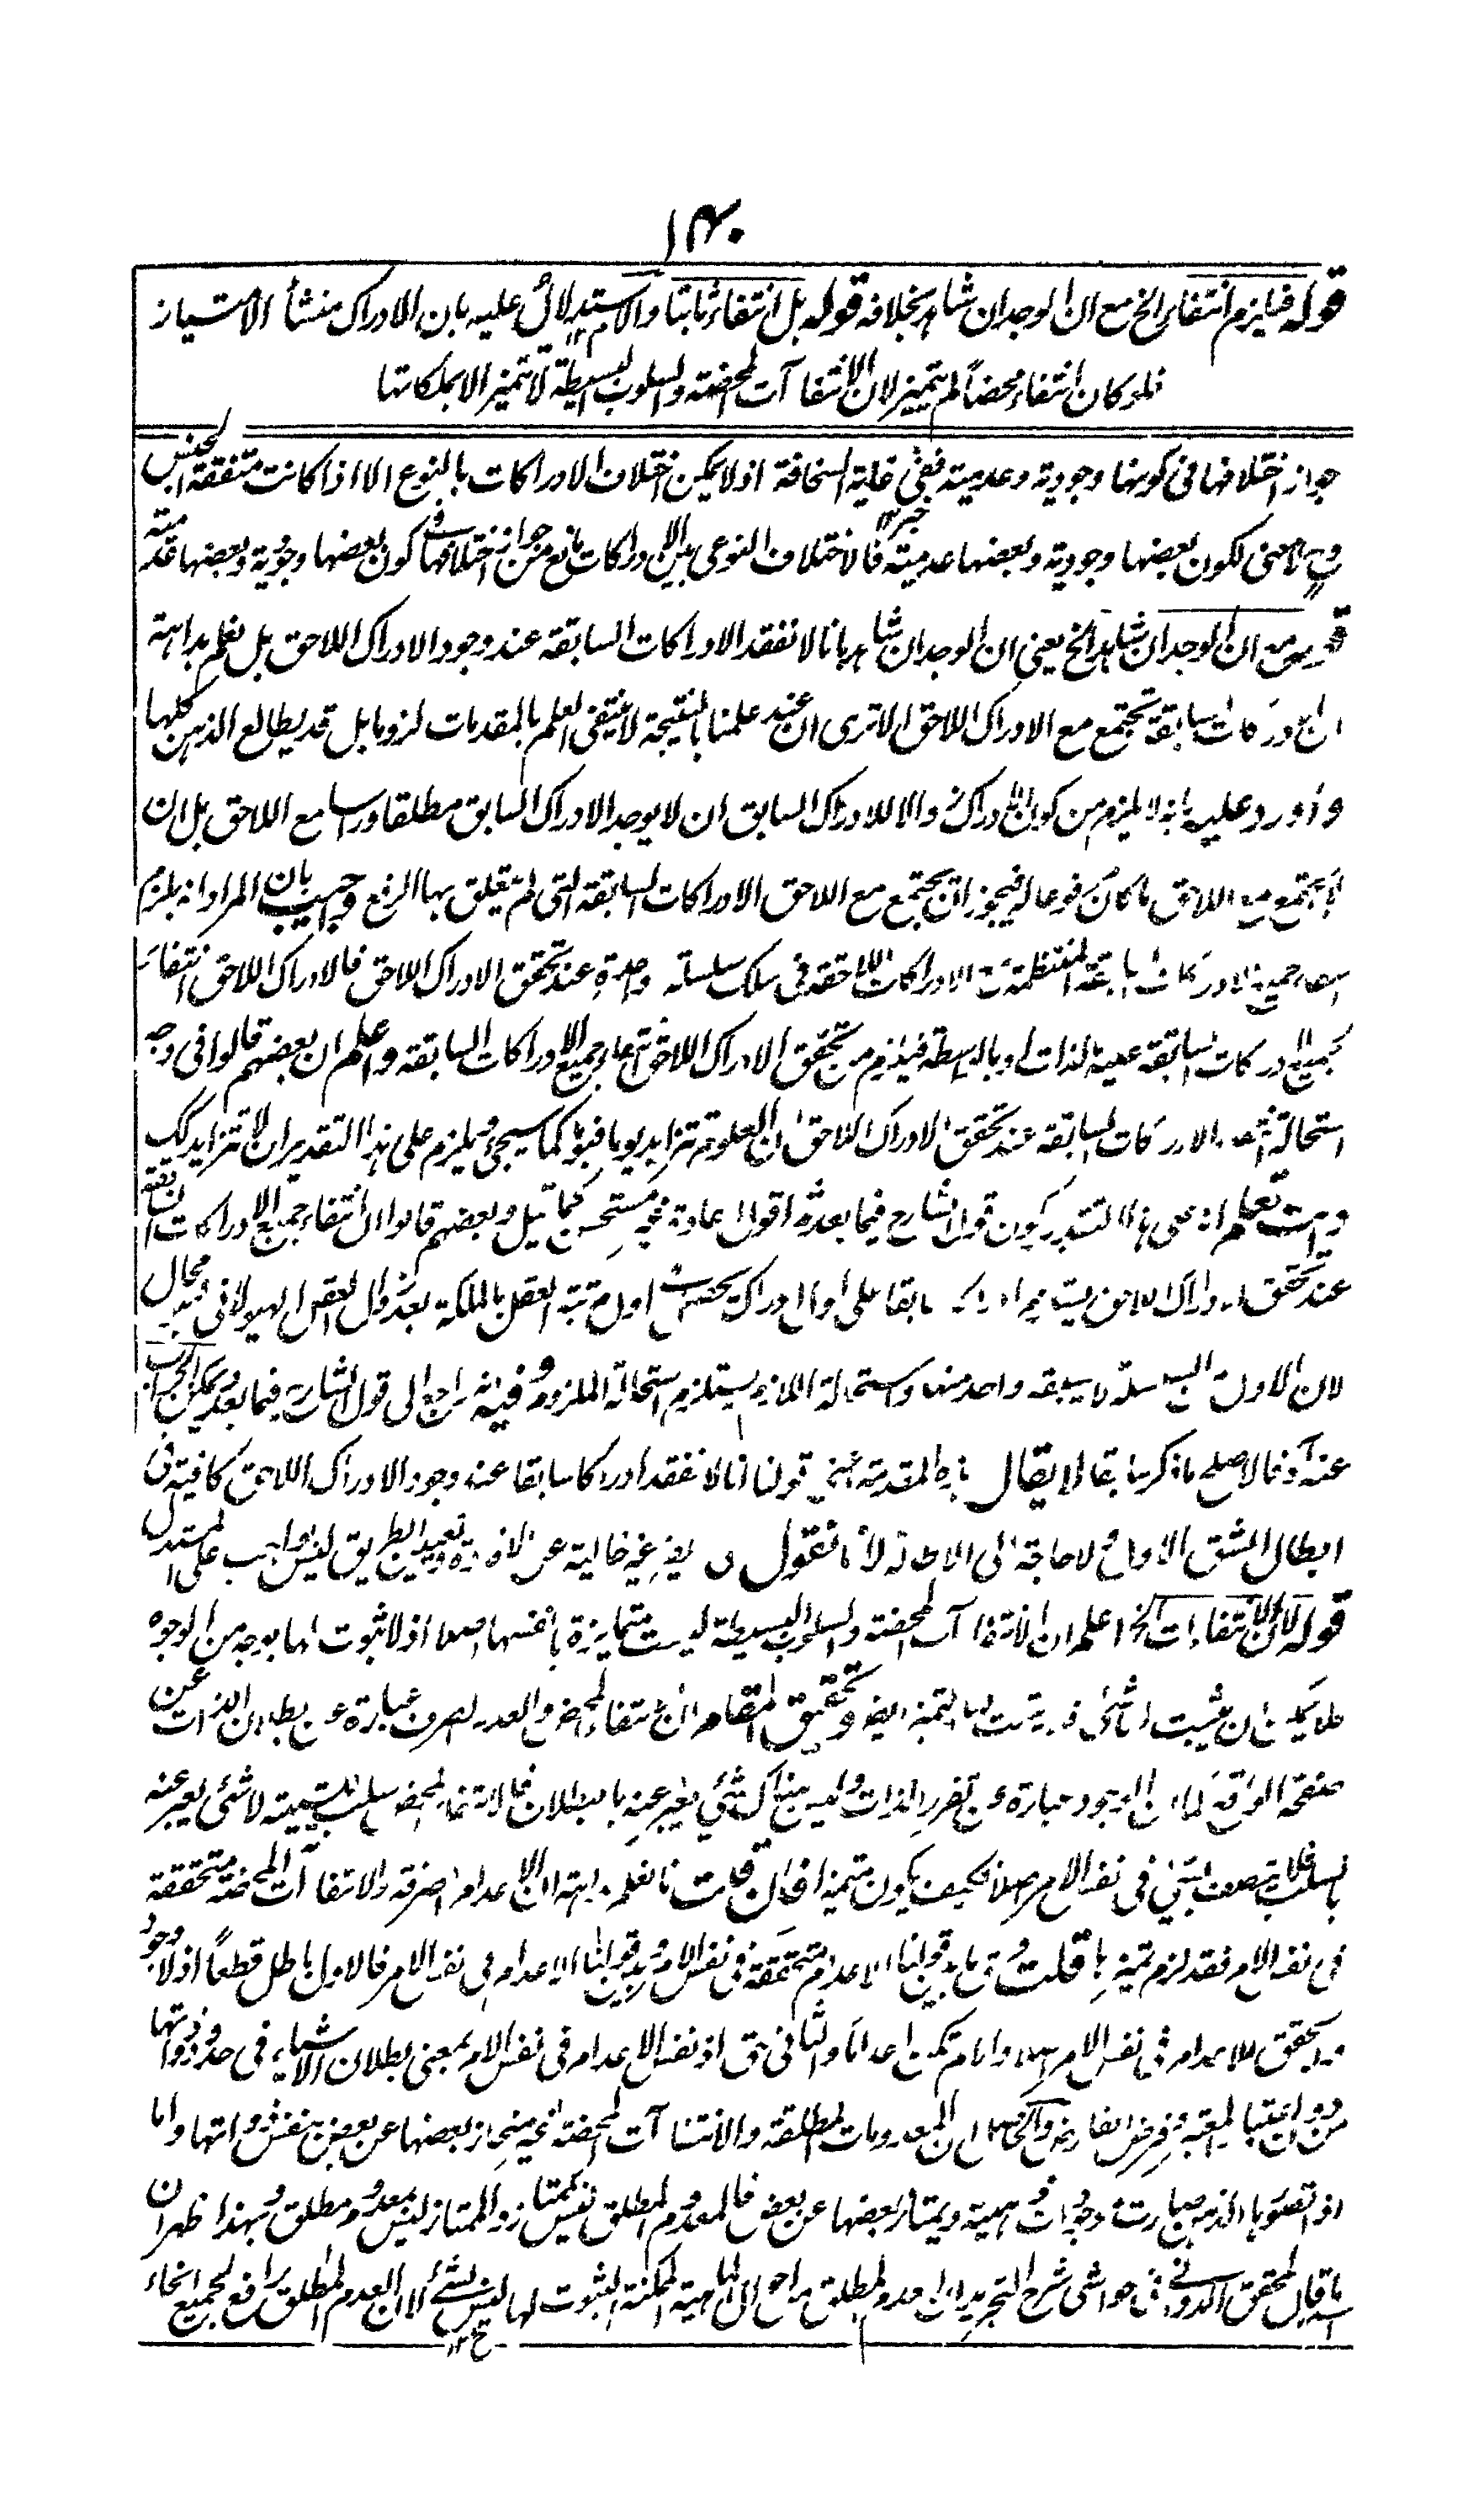 ١٤٠
قوله فيلزم انتفاء الخ مع ان الوجدان شاهد بخلافه قوله بل انتفاء ثابتا والاستدلال عليه بان الادراك منشأ الامتياز
فلو كان انتفاء محضاً لم يتميز لان الانتفاآت المحضة والسلوب البسيطة لا تتميز الا بملكاتها
جواز اختلافها فى كونها وجودية وعدمية ففى غاية السخافة اذ لا يمكن اختلاف الادراكات بالنوع الا اذا كانت متفقة الجنس
لكون بعضها وجودية وبعضها عدمية فالاختلاف النوعى بين الادراكات مانع من جواز اختلافها فى كون بعضها وجودية وبعضها عدمية
ان الوجدان شاهد الخ يعنى ان الوجدان شاهد بانا لا نفقد الادراكات السابقة عند وجود الادراك اللاحق بل نعلم بداهة
ان الادراكات السابقة تجتمع مع الادراك اللاحق الا ترى ان عند علمنا بالنتيجة لا ينتفى العلم بالمقدمات لزوما بل قد يطالع الذهن كلها
واورد عليه بانه لا يلزم من كون الادراك زوالا للادراك السابق ان لا يوجد الادراك السابق مطلقا وراسا مع اللاحق بل ان
لا يجتمع مع اللاحق ما كان رفعا له فيجوز ان يجتمع مع اللاحق الادراكات السابقة التى لم يتعلق بها الرفع واجيب بان المراد انه يلزم
جميع الادراكات السابقة المنتظمة مع الادراكات اللاحقة فى سلك سلسلة واحدة عند تحقق الادراك اللاحق فالادراك اللاحق انتفاء
لجميع الادراكات السابقة عليه بالذات او بالواسطة فيلزم من تحقق الادراك اللاحق انتفاء جميع الادراكات السابقة واعلم ان بعضهم قالوا فى وجه
استحالة انتفاء الادراكات السابقة عند تحقق الادراك اللاحق ان العلوم تتزايد يوما فيوما كما سيجئ ويلزم على هذا التقدير ان لا تتزايد
وانت تعلم انه على هذا التقدير يكون قول الشارح فيما بعد ثم اقول اعادة غير مستحسن كما قيل وبعضهم قالوا ان انتفاء جميع الادراكات السابقة
عند تحقق الادراك اللاحق سابقا على اول ادراك يحصل فى اول مرتبة العقل بالملكة بعد زوال العقل الهيولانى محال
لان الاول لا يسبقه واحد منها واستحالة اللازم يستلزم استحالة الملزوم وفيه انه راجع الى قول الشارح فيما بعد ويمكن الجواب
عنه فالاصلح ما ذكر سابقا لا يقال هذه المقدمة اعنى قولنا انا لا نفقد ادراكا سابقا عند وجود الادراك اللاحق كافية فى
ابطال الشق الاول ولا حاجة الى الاطالة لانا نقول خالية عن الافادة وتعيين الطريق ليس بواجب على المستدل
قوله لان الانتفاءات الخ اعلم ان الانتفاآت المحضة والسلوب البسيطة ليست متمايزة بانفسها اصلا اذ لا ثبوت لها بوجه من الوجوه
فلا يمكن ان يثبت لها شئ وتحقيق المقام ان الانتفاء المحض والعدم الصرف عبارة عن بطلان الذات عن
صفحة الواقع كما ان الوجود عبارة عن تقرر الذات وليس هناك شئ يعبر عنه بالبطلان فالانتفاء المحض سلب لشيئية لا شئ يعبر عنه
بالسلب فلا يتصف بشئ فى نفس الامر اصلا فكيف يكون متميزا فان قلت انا نعلم بداهة ان الاعدام الصرفة والانتفاآت المحضة متحققة
فى نفس الامر فقد لزم تميزها قلت فرق ما بين قولنا الاعدام متحققة فى نفس الامر وبين قولنا الاعدام فى نفس الامر فالاول باطل قطعاً اذ لا وجود
ولا تحقق للاعدام فى نفس الامر اصلا والا لم تكن اعداما والثانى حق اذ نفس الاعدام فى نفس الامر بمعنى بطلان الاشياء فى حدود ذواتها
من دون اعتبار المعتبر وفرض الفارض والحق ان المعدومات المطلقة والانتفاآت المحضة غير منحاز بعضها عن بعض بنفس ذواتها واما
اذا تصورها الذهن صارت موجودات ذهنية ويمتاز بعضها عن بعض فالمعدوم المطلق ليس بممتاز والممتاز ليس بمعدوم مطلق وبهذا ظهر ان
ما قال المحقق الدوانى فى حواشى شرح التجريد ان العدم المطلق من احوال الماهية الممكنة الثبوت لها ليس بشئ لان العدم المطلق رافع لجميع انحاء